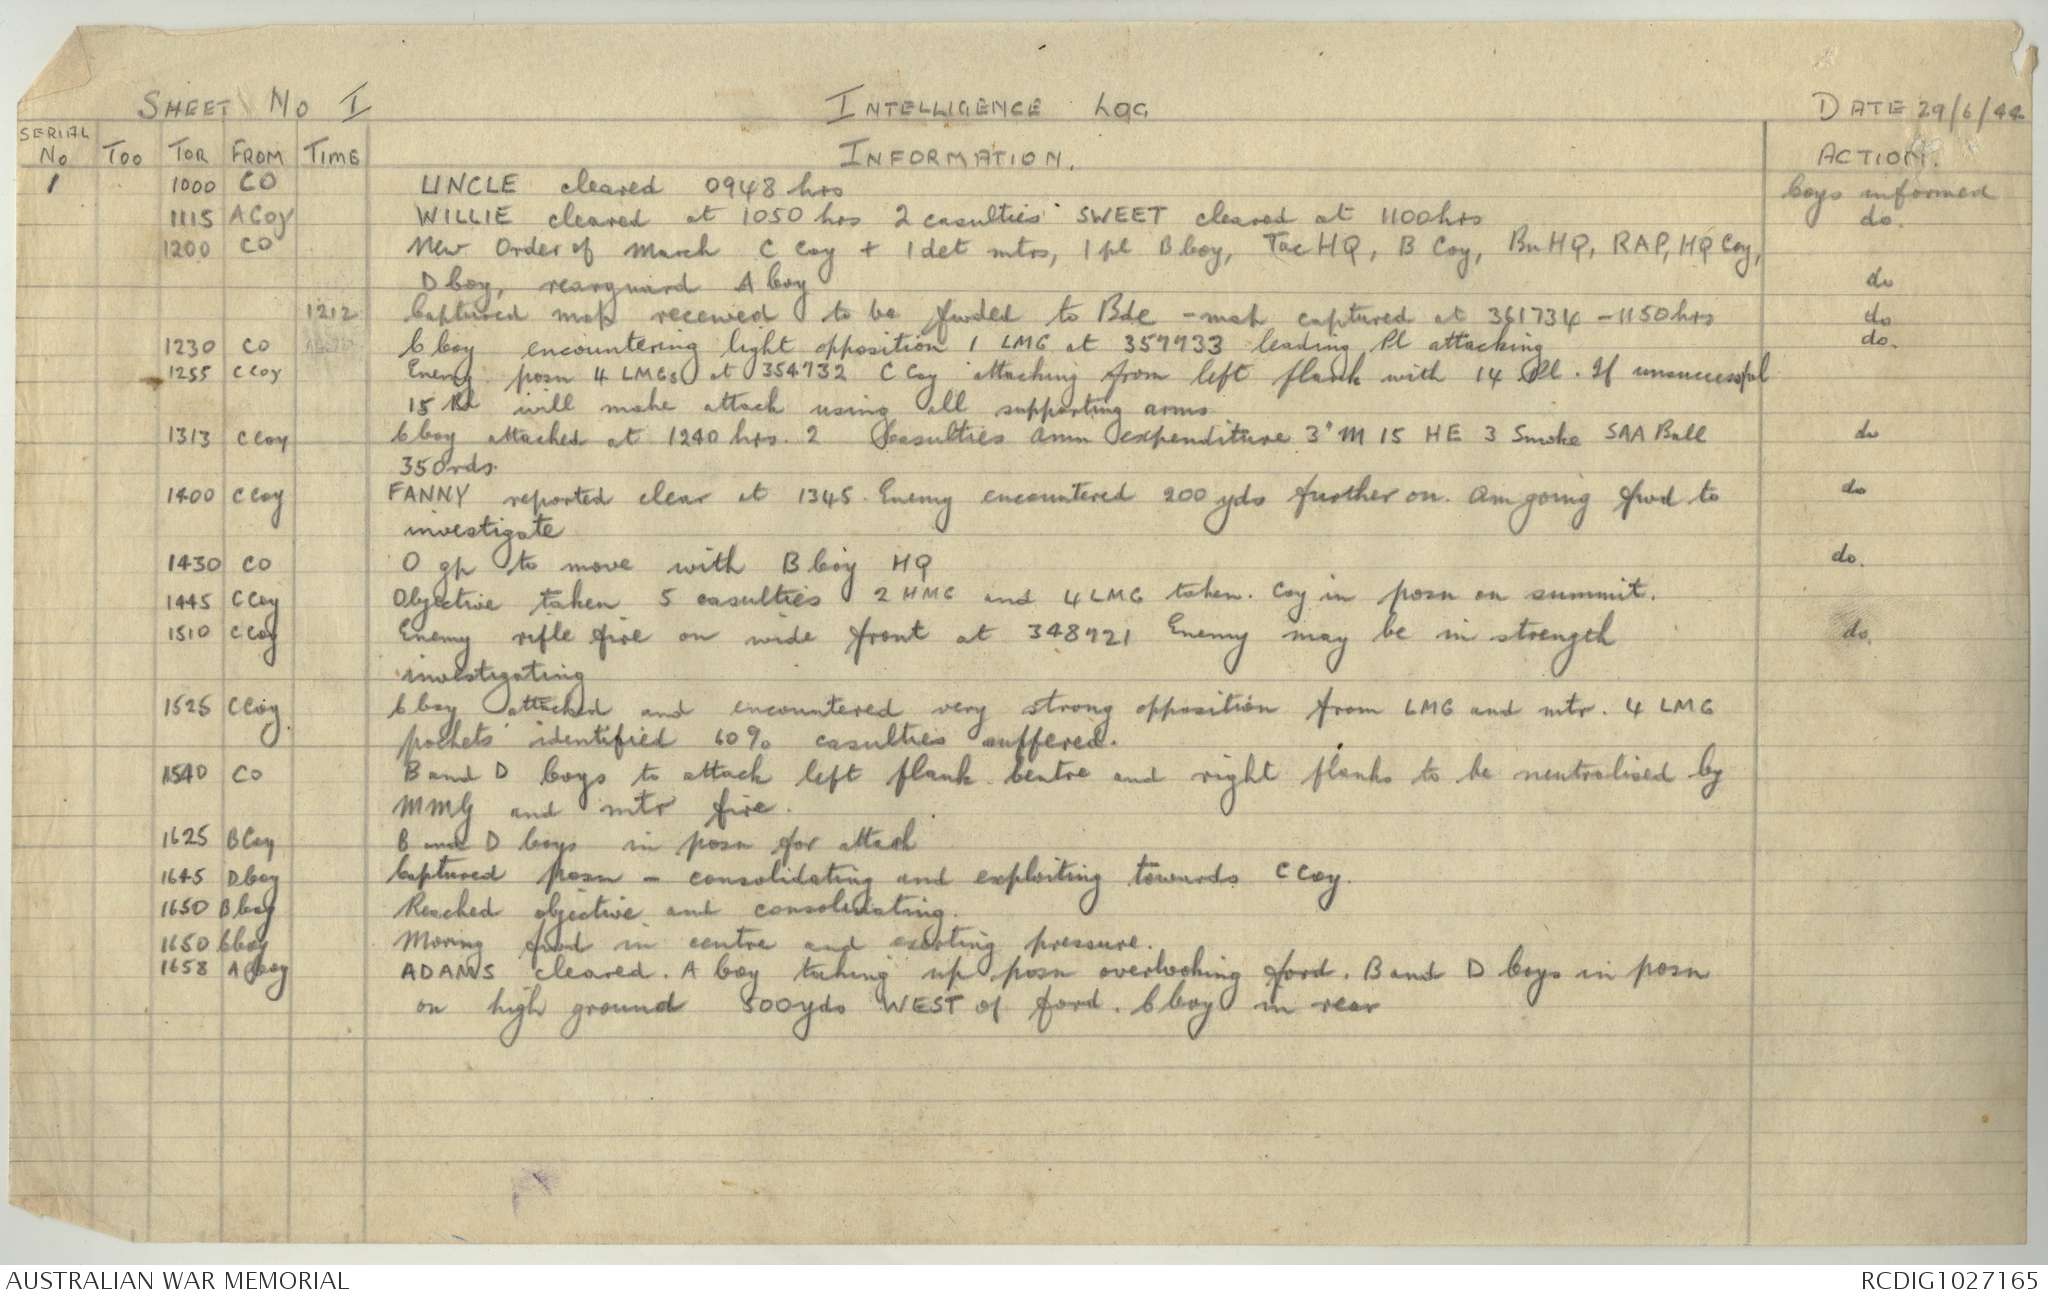 SHEET No I INTELLIGENCE LOG DATE 29/6/44
SERIAL No TOO TOR FROM TIME INFORMATION. ACTION.
1 1000 CO UNCLE cleared 0948 hrs Coys informed
1115 A Coy WILLIE cleared at 1050 hrs 2 casulties SWEET cleared at 1100 hrs do.
1200 CO New Order of March C Coy + 1 det mtrs, 1 pl B Coy, Tac HQ, B Coy, Bn HQ, RAP, HQ Coy,
D Coy, rearguard A Coy do
1212 Captured map received to be fwded to Bde - map captured at 361734 - 1150 hrs do
1230 CO C Coy encountering light opposition 1 LMG at 357733 leading Pl attacking do.
1255 C Coy Enemy posn 4 LMGs at 354732 C Coy attacking from left flank with 14 Pl. If unsuccessful
15 Pl will make attack using all supporting arms
1313 C Coy C Coy attacked at 1240 hrs. 2 Casulties amm expenditure 3" M 15 HE 3 Smoke SAA Ball do
350 rds.
1400 C Coy FANNY reported clear at 1345. Enemy encountered 200 yds further on. Am going fwd to do
investigate
1430 CO O gp to move with B Coy HQ do.
1445 C Coy Objective taken 5 casulties 2 HMG and 4 LMG taken. Coy in posn on summit.
1510 C Coy Enemy rifle fire on wide front at 348721 Enemy may be in strength do.
investigating
1525 C Coy C Coy attacked and encountered very strong opposition from LMG and mtr. 4 LMG
pockets identified 60% casulties suffered.
1540 CO B and D Coys to attack left flank. Centre and right flanks to be neutralised by
MMG and mtr fire.
1625 B Coy B and D Coys in posn for attack
1645 D Coy Captured posn - consolidating and exploiting towards C Coy.
1650 B Coy Reached objective and consolidating.
1650 C Coy Moving fwd in centre and exerting pressure.
1658 A Coy ADAMS cleared. A Coy taking up posn overlooking ford. B and D Coys in posn
on high ground 500 yds WEST of ford. C Coy in rear
AUSTRALIAN WAR MEMORIAL RCDIG1027165